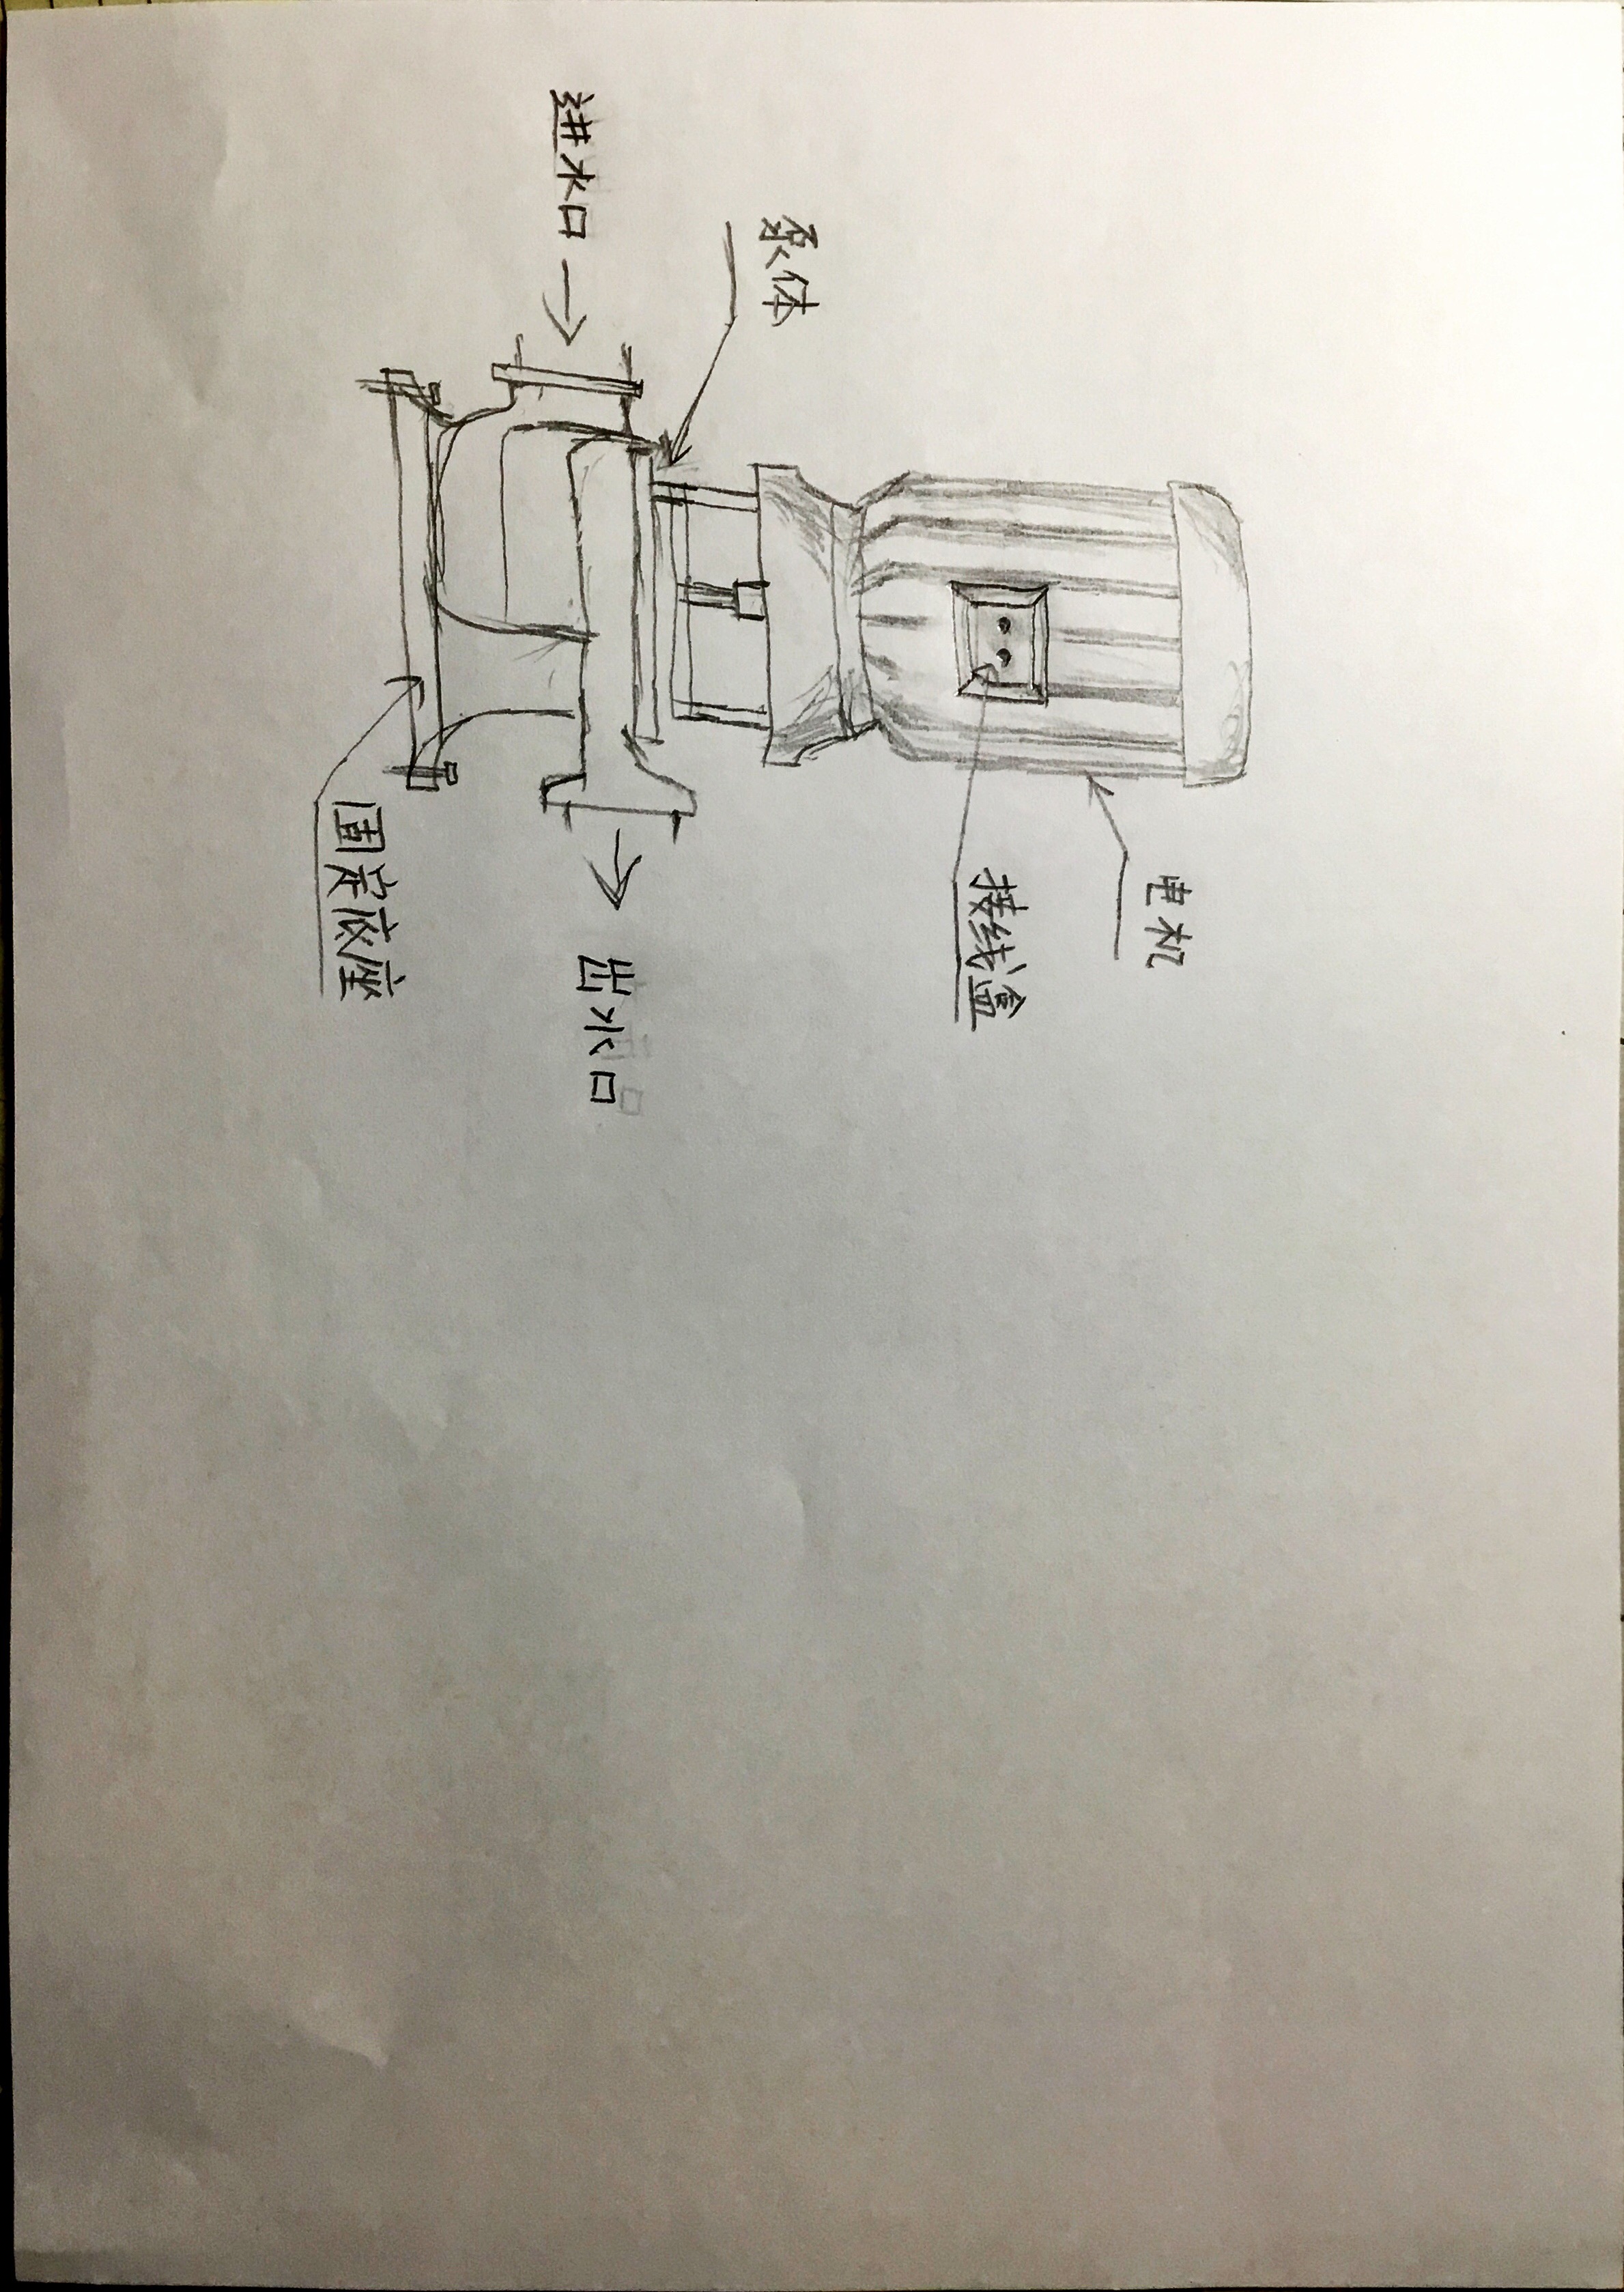 电机
接线盒
泵体
进水口
出水口
固定底座